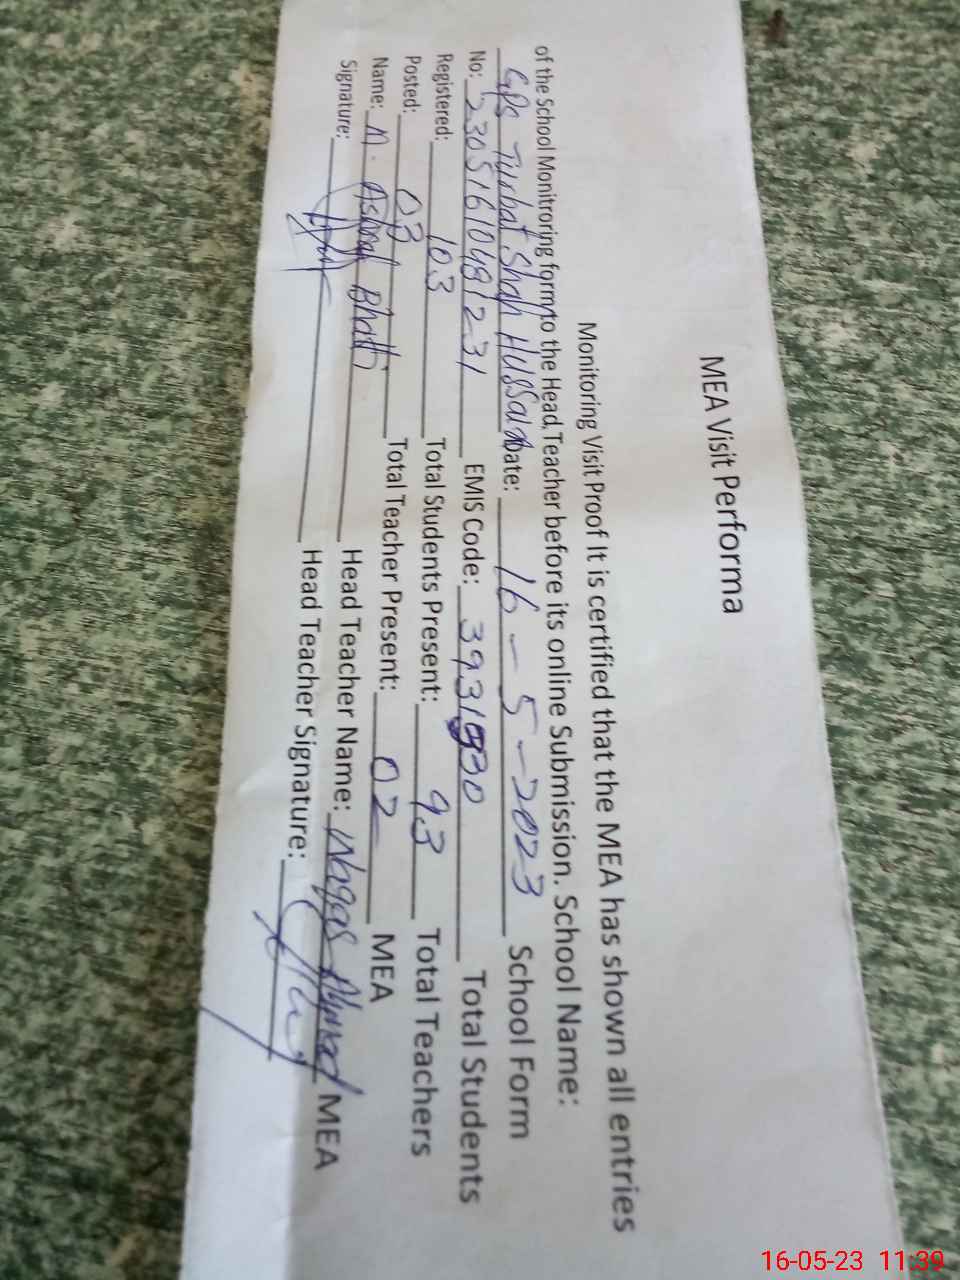 MEA Visit Performa
Monitoring Visit Proof It is certified that the MEA has shown all entries
of the School Monitroring formyto the Head Teacher before its online Submission. School Name:
GPS Turbat Shah Hussain Date: 16-5-2023 School Form
No: 23051610481231 EMIS Code: Total Students
Registered: 103 Total Students Present: 93 Total Teachers
Posted: 03 Total Teacher Present: 02 MEA
Name: M. Ashraf Bhatti Head Teacher Name: Waqas Ahmad MEA
Signature: Head Teacher Signature:
16-05-23 11:39